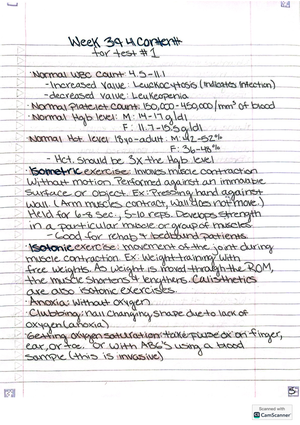 Week 3 & 4 Content
for test #1
· Normal WBC Count: 4.5-11.1
- Increased value: Leukocytosis (Indicates Infection)
- decreased value: Leukopenia
· Normal Platelet Count: 150,000-450,000/mm³ of blood
· Normal Hgb level: M: 14-17 g/dl
F: 11.7-15.5 g/dl
· Normal Hct level 18yo-adult: M: 42-52%
F: 36-48%
- Hct. should be 3x the Hgb level
· Isometric exercise: Involves muscle contraction
without motion. Performed against an immovable
surface or object. Ex: Pressing hand against
wall. (Arm muscles contract, wall does not move.)
Held for 6-8 sec., 5-10 reps. Develops strength
in a particular muscle or group of muscles.
- Good for rehab & bedbound patients
· Isotonic exercise: movement of the joint during
muscle contraction. Ex: Weight training with
free weights. As weight is moved through the ROM,
the muscle shortens & lengthens. Calisthetics
are also isotonic exercises.
· Anoxia: without oxygen
· Clubbing: nail changing shape due to lack of
oxygen (anoxia)
· Getting oxygen saturation: take pulse ox on finger,
ear, or toe. Or with ABG's using a blood
sample (this is invasive)
5
Scanned with
CS CamScanner